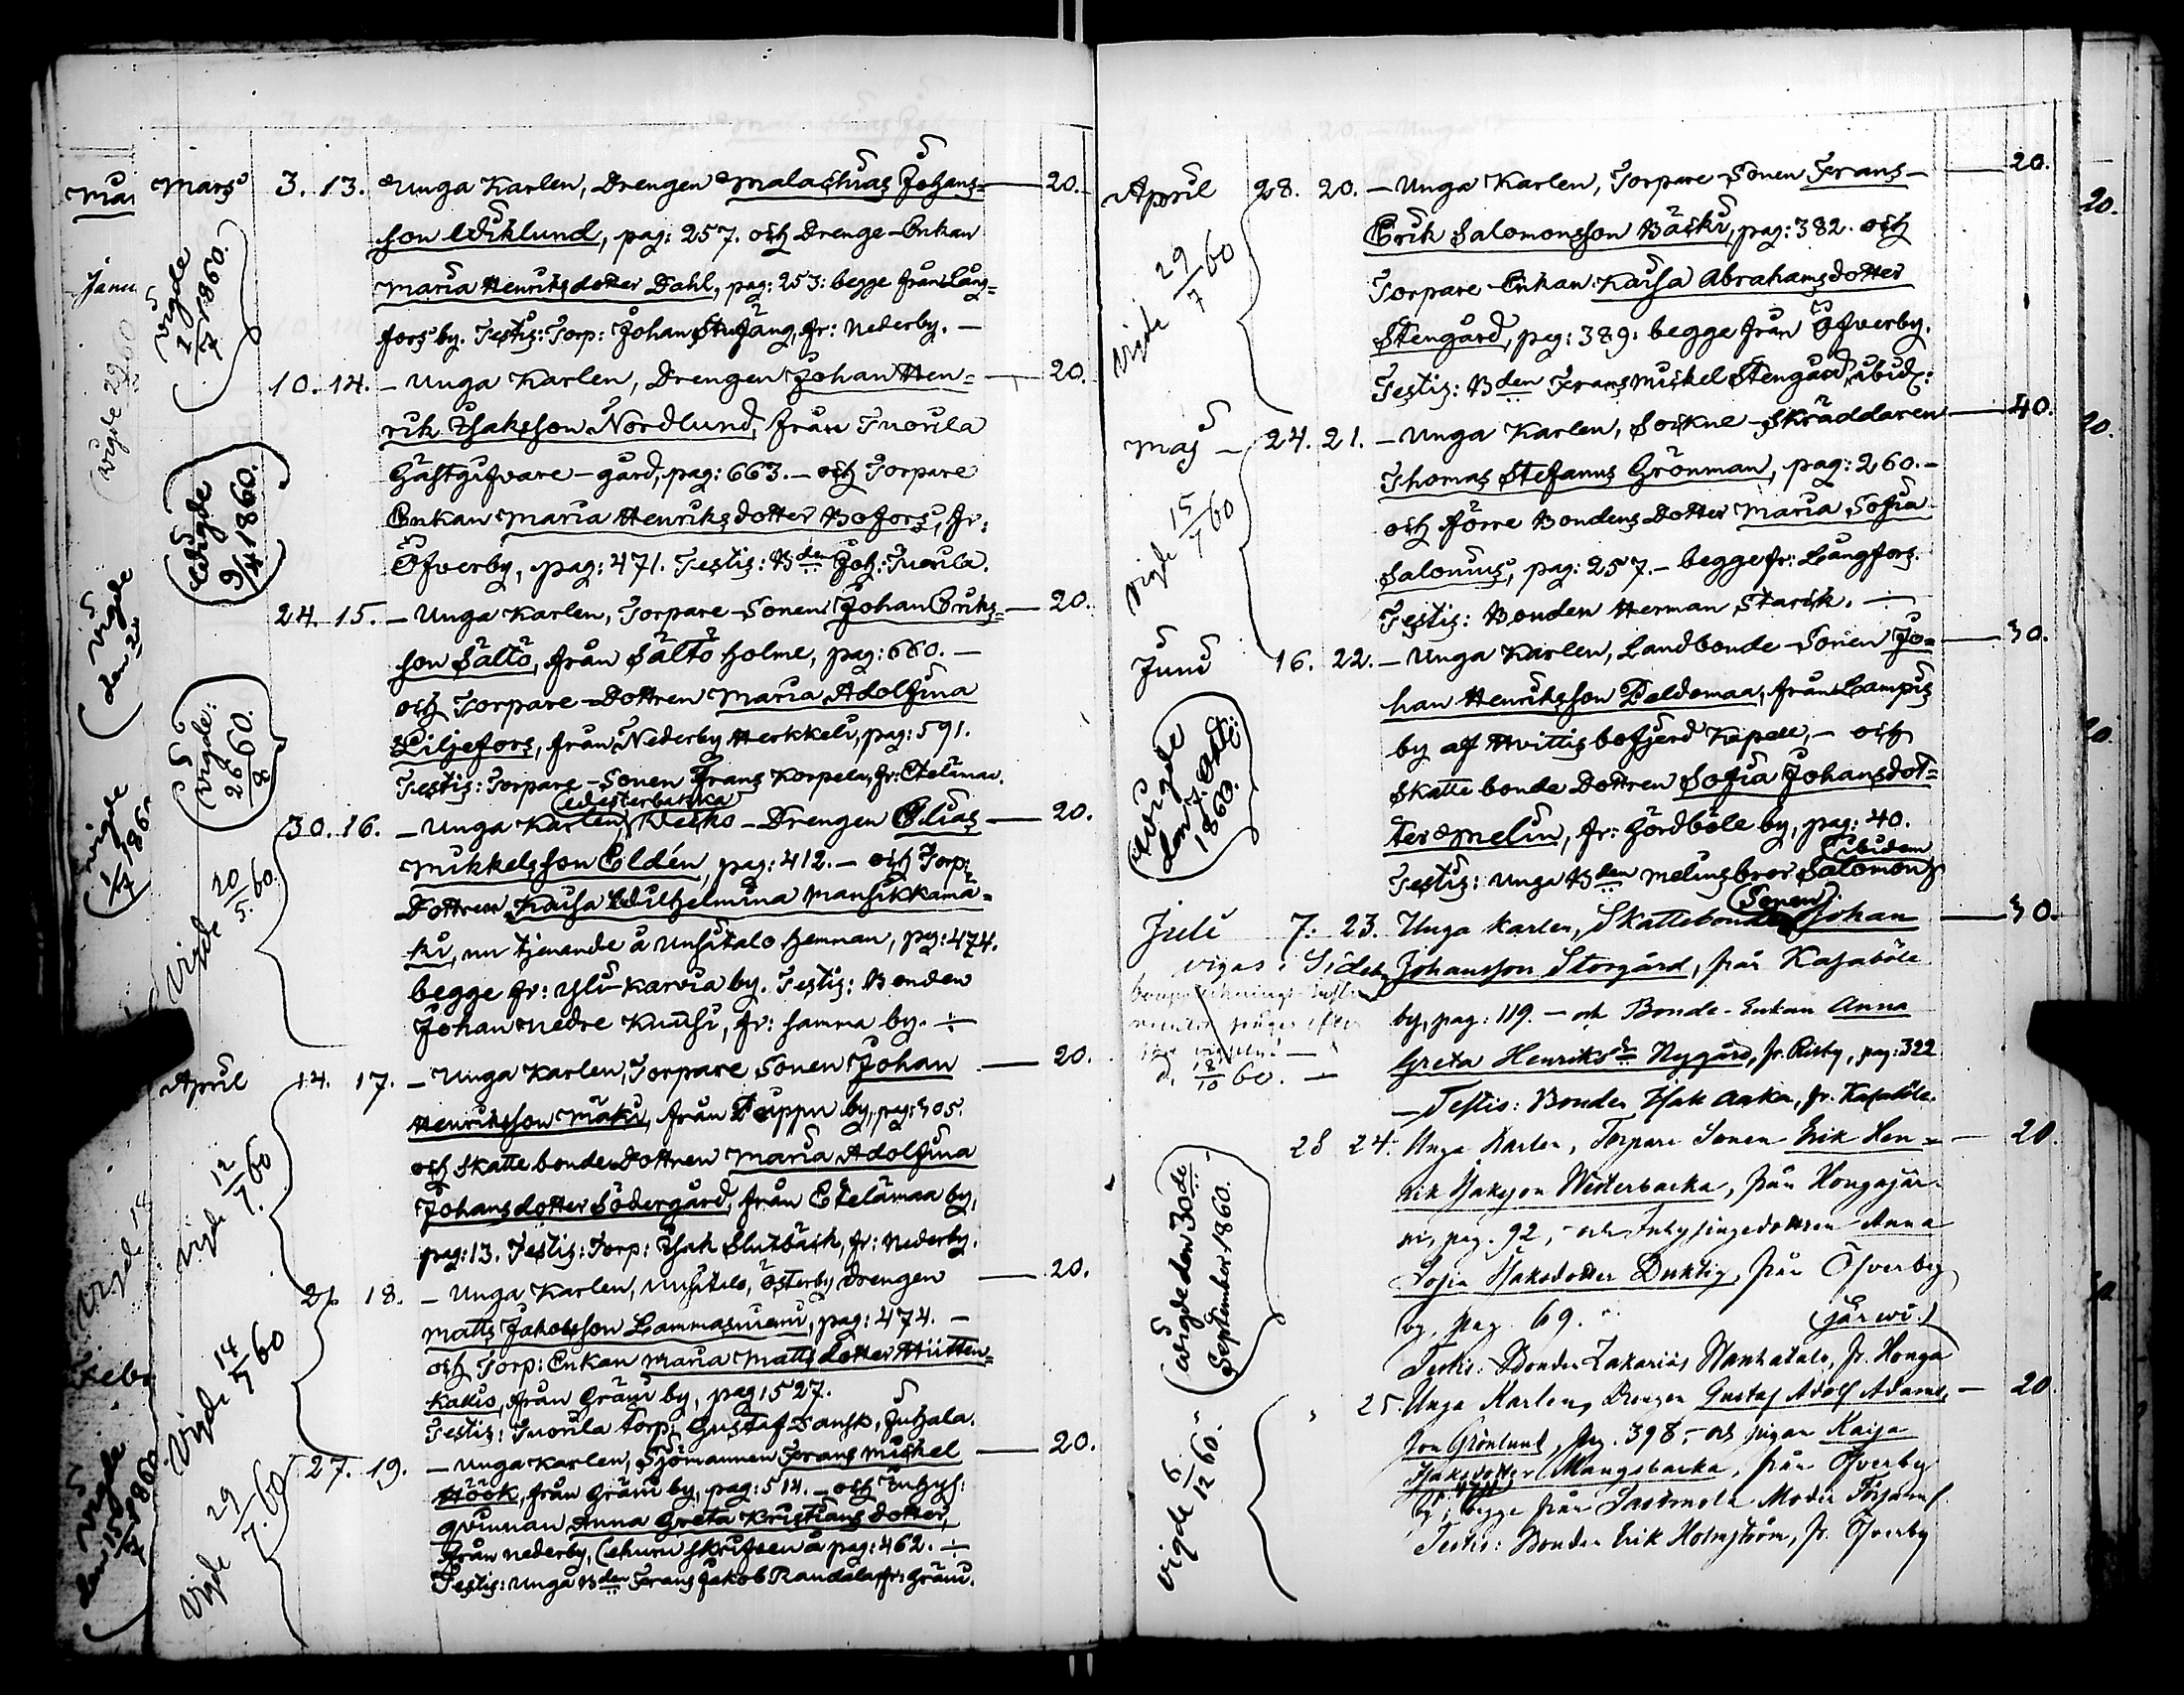 Mars 3. 13. Unga Karlen, Drengen Malachias Johans= — 20.
son Wiklund, pag: 257. och Drenge-Enkan
Maria Henriksdotter Dahl, pag: 253: begge från Lång=
fors by. Testis: Torp: Johan Stufäng, fr: Nederby. —
Vigde 1/7 1860.
10. 14. — Unga Karlen, Drengen Johan Hen= — 20.
rik Isaksson Nordlund, från Tuorila
Gästgifvare-gård, pag: 663. — och Torpare
Enkan Maria Henriksdotter Bofors, fr:
Öfverby, pag: 471. Testis: Bden Joh: Tuorila.
Wigde 9/4 1860.
24. 15. — Unga Karlen, Torpare-Sonen Johan Eriks= — 20.
son Sältö, från Sältö holme, pag: 660. —
och Torpare-Dottren Maria Adolfina
Liljefors, från Nederby Herkkeli, pag: 591.
Testis: Torpare-Sonen Frans Korpela, fr: Etelämaa.
Vigde: 26/8 60.
Westerbacka
30. 16. — Unga Karlen, Weiko-Drengen Elias — 20.
Mikkelsson Eldén, pag: 412. — och Torp:
Dottren Kaisa Wilhelmina Mansikkamä=
ki, nu tjenande å Uusitalo hemman, pg: 474.
begge fr: Yli-Karvia by. Testis: Bonden
Johan Nedre Knuusi, fr: samma by. ÷
Vigde 20/5. 60.
April 14. 17. — Unga Karlen, Torpare Sonen Johan — 20.
Henriksson Mäki, från Tuppu by, pag: 305.
och Skattebonde Dottren Maria Adolfina
Johansdotter Södergård, från Etelämaa by,
pag: 13. Testis: Torp: Isak Slutbäck, fr: Nederby.
Vigde 12/7. 60
21. 18. — Unga Karlen, Uusitalo, Österby Drengen — 20.
Matts Jakobsson Lammasniemi, pag: 474. —
och Torp: Enkan Maria Mattsdotter Hiitten=
kakio, från Gräni by, pag: 527.
Testis: Tuorila torp: Gustaf Dansk, Juhala.
Vigde 14/7 60
27. 19. — Unga Karlen, Sjömannen Frans Mickel — 20.
Höök, från Gräni by, pag: 514. — och Inhys:
qvinnan Anna Greta Kristiansdotter,
från Nederby, ehuru skrifven å pag: 462. ÷
Testis: Unga Bden Frans Jakob Randala, fr: Gräni.
Vigde 29/7. 60
April 28. 20. — Unga Karlen, Torpare-Sonen Frans — 20.
Erik Salomonsson Bäcki, pag: 382. och
Torpare-Enkan Kaisa Abrahamsdotter
Stengård, pag: 389: begge från Öfverby.
Testis: Bden Frans Mickel Stengård, ibid:
Vigde 29/7 60
Maj — 24. 21. — Unga Karlen, Sockne-Skräddaren — 40.
Thomas Stefanus Grönman, pag: 260. —
och förre Bondens Dotter Maria Sofia
Salonius, pag: 257. — begge fr: Långfors.
Testis: Bonden Herman Starck. ÷
Vigde 15/7 60
Juni 16. 22. — Unga Karlen, Landbonde-Sonen Jo= — 30.
han Henriksson Peldomaa, från Lampis
by af Hvittisbofjerd Kapell, — och
Skattebonde Dottren Sofia Johansdot=
ter Melin, fr: Gördböle by, pag: 40.
ibidem
Testis: Unga Bden Melins bror Salomon
Wigde den 7. Oct: 1860.
Sonen
Juli 7. 23. Unga Karlen, Skattebonde Johan — 30.
Johansson Storgård, från Kasaböle
by, pag: 119. — och Bonde-Enkan Anna
Greta Henriksdr Nygård, fr. Risby, pag: 322
— Testis: Bonden Isak Anka, fr. Kasaböle.
vigas i Sideby
d. 18/10 60. —
28 24. Unga Karlen, Torpare Sonen Erik Hen= — 20.
rik Isaksson Westerbacka, från Hongajär=
vi, pag. 92, — och Inhysingedottren Anna
Sofia Isaksdotter Duktig, från Öfverby
by, pag. 69. "
järwi.
Testis: Bonden Zakarias Wanhatalo, fr. Honga
Wigde den 30de September 1860.
" 25. Unga Karlen, Drengen Gustaf Adolf Adams, — 20.
son Grönlund, pag. 398, — och pigan Kaisa
Isaksdotter Mangsbacka, från Öfverby
by, begge från
Testis: Bonden Erik Holmström, fr. Öfverby
Vigde 6/12 60."